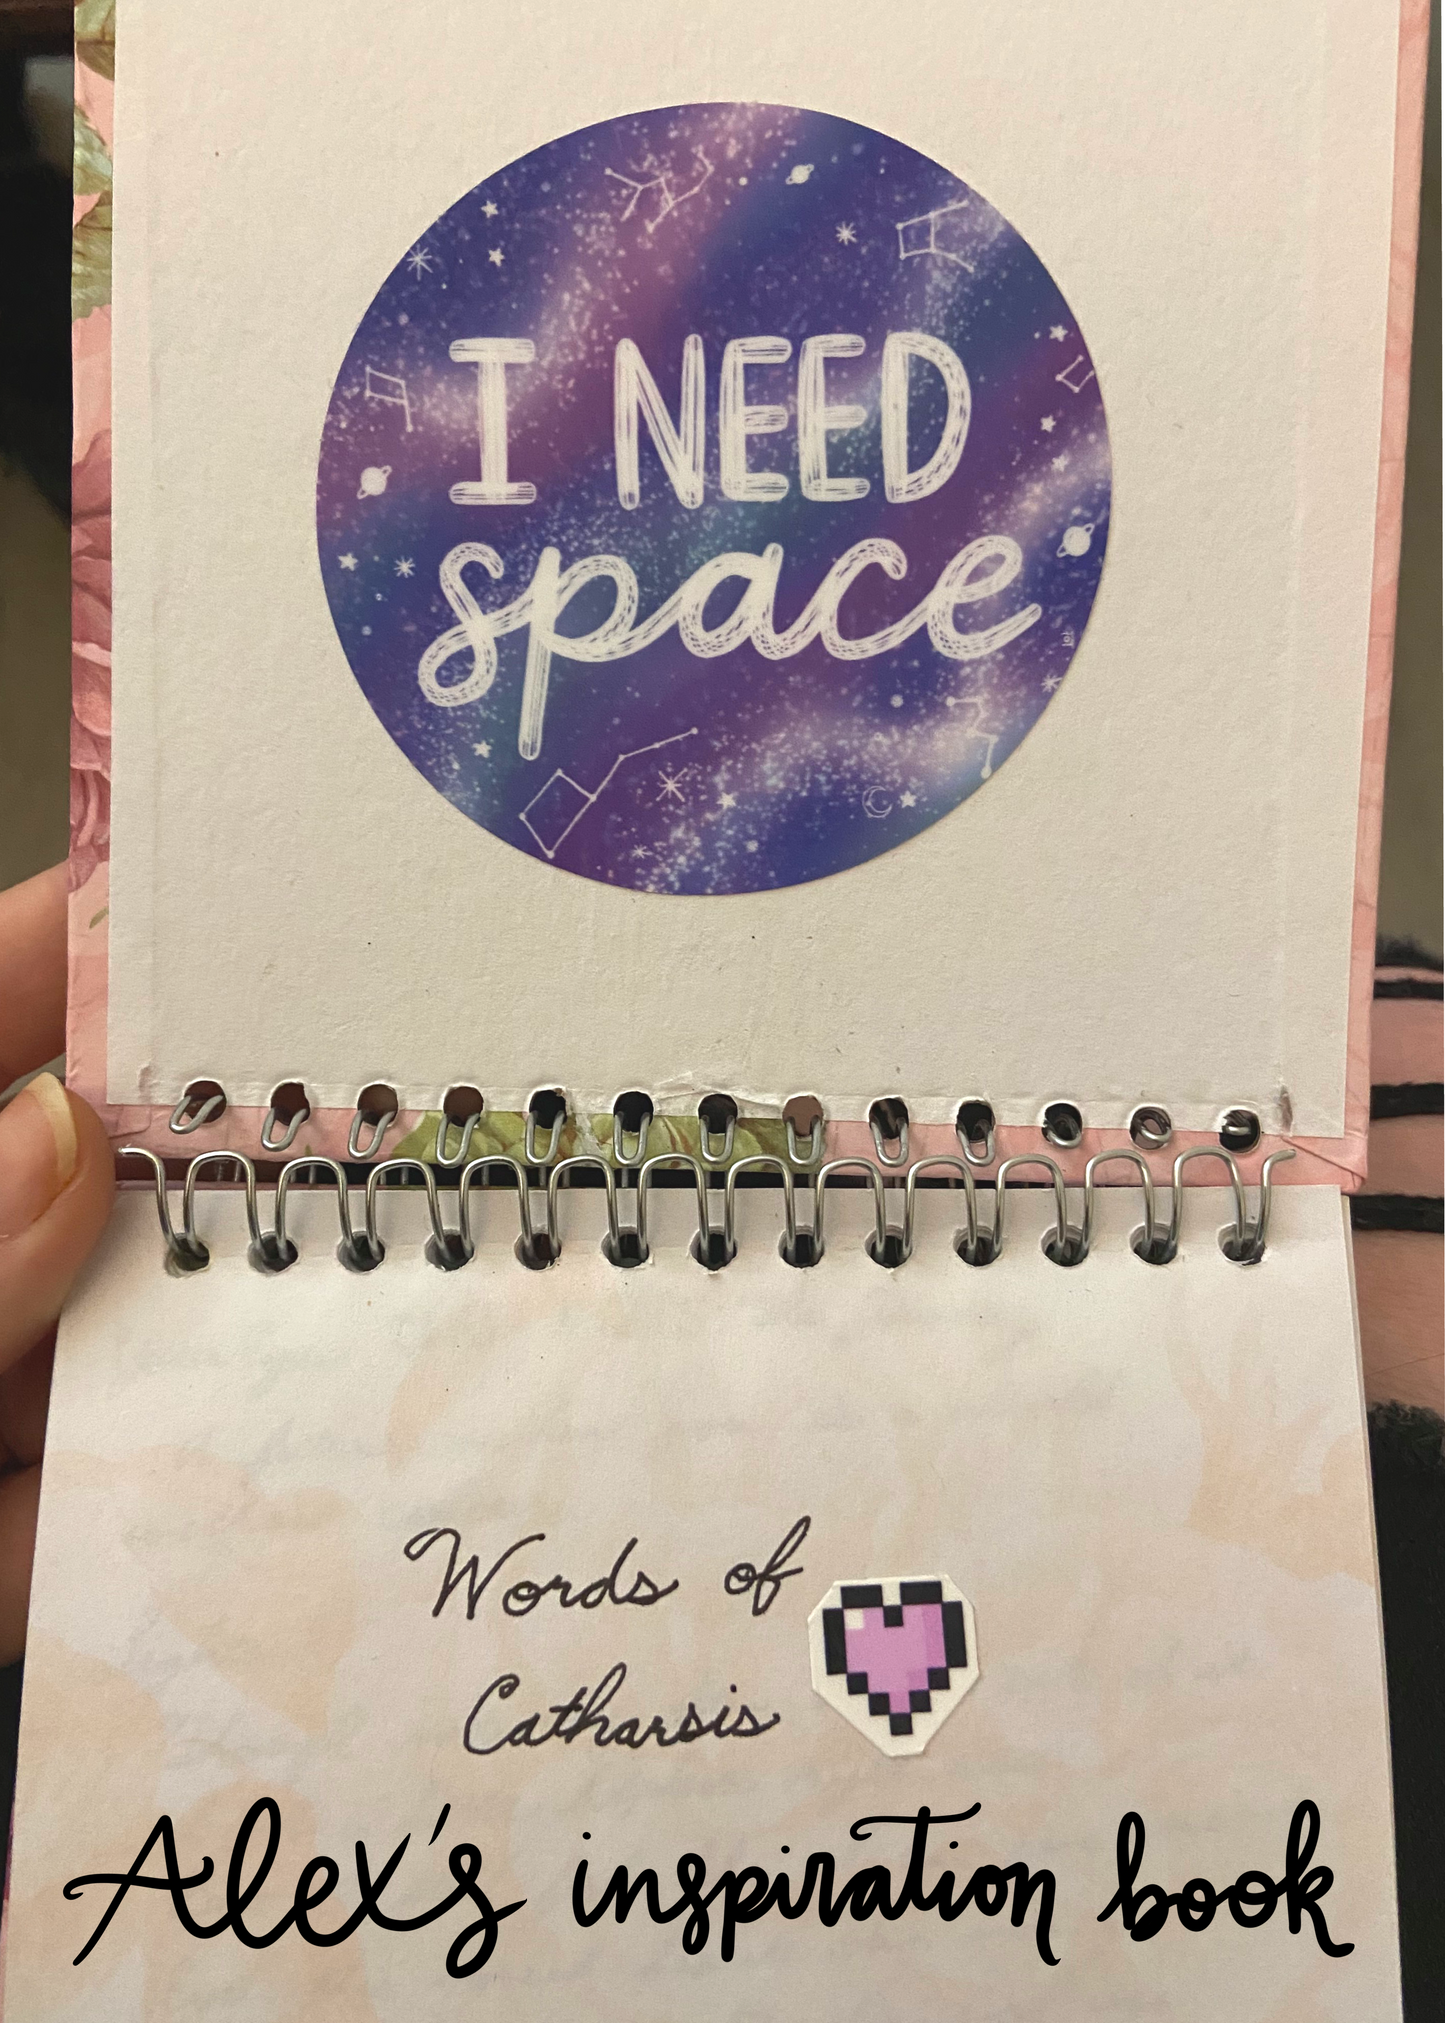 I NEED
space
Words of
Catharsis
Alex's inspiration book